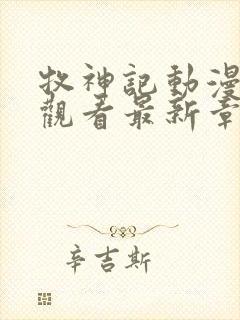 牧神記動漫
觀看最新章
辛吉斯